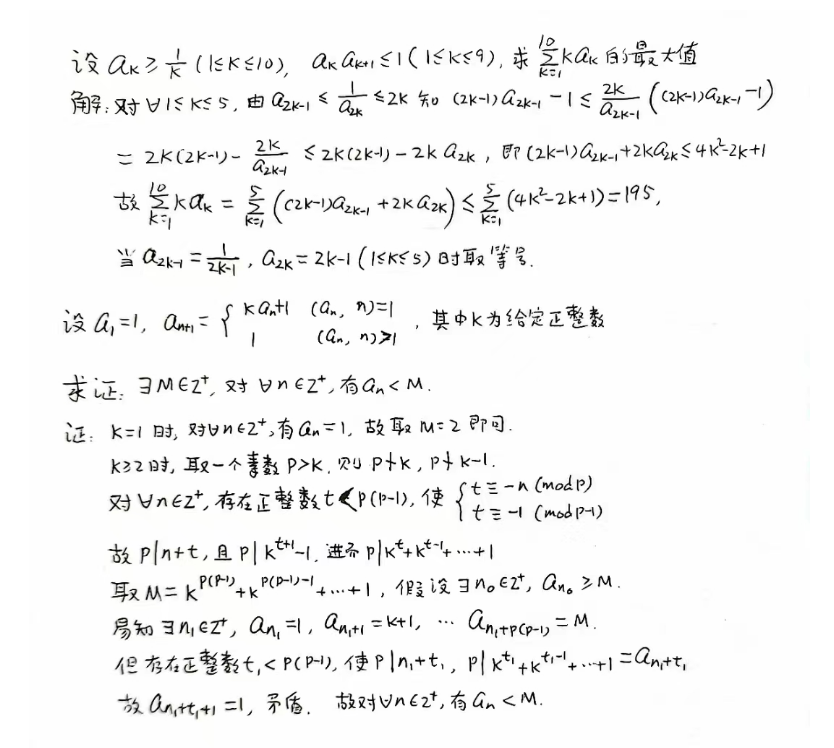 设 aₖ ≥ 1/k (1≤k≤10), aₖaₖ₊₁ ≤ 1 (1≤k≤9), 求 ∑_{k=1}^{10} kaₖ 的最大值
解: 对∀1≤k≤5, 由 a₂ₖ₋₁ ≤ 1/a₂ₖ ≤ 2k 知 (2k-1)a₂ₖ₋₁ - 1 ≤ 2k/a₂ₖ₋₁ ((2k-1)a₂ₖ₋₁ - 1)
= 2k(2k-1) - 2k/a₂ₖ₋₁ ≤ 2k(2k-1) - 2k a₂ₖ, 即 (2k-1)a₂ₖ₋₁ + 2ka₂ₖ ≤ 4k²-2k+1
故 ∑_{k=1}^{10} kaₖ = ∑_{k=1}^{5} ((2k-1)a₂ₖ₋₁ + 2ka₂ₖ) ≤ ∑_{k=1}^{5} (4k²-2k+1) = 195,
当 a₂ₖ₋₁ = 1/(2k-1), a₂ₖ = 2k-1 (1≤k≤5) 时取等号.
设 a₁=1, aₙ₊₁ = { kaₙ+1 (aₙ, n)=1 ; 1 (aₙ, n)>1 , 其中k为给定正整数
求证: ∃M∈Z⁺, 对∀n∈Z⁺, 有aₙ<M.
证: k=1时, 对∀n∈Z⁺, 有aₙ=1, 故取M=2即可.
k≥2时, 取一个素数p>k, 则p∤k, p∤k-1.
对∀n∈Z⁺, 存在正整数t<p(p-1), 使 { t≡-n (mod p) ; t≡-1 (mod p-1)
故 p|n+t, 且 p|k^{t+1}-1, 进而 p|k^t+k^{t-1}+…+1
取M=k^{p(p-1)}+k^{p(p-1)-1}+…+1, 假设∃n₀∈Z⁺, a_{n₀}≥M.
易知∃n₁∈Z⁺, a_{n₁}=1, a_{n₁+1}=k+1, … a_{n₁+p(p-1)}=M.
但存在正整数t₁<p(p-1), 使p|n₁+t₁, p|k^{t₁}+k^{t₁-1}+…+1=a_{n₁+t₁}
故a_{n₁+t₁+1}=1, 矛盾. 故对∀n∈Z⁺, 有aₙ<M.